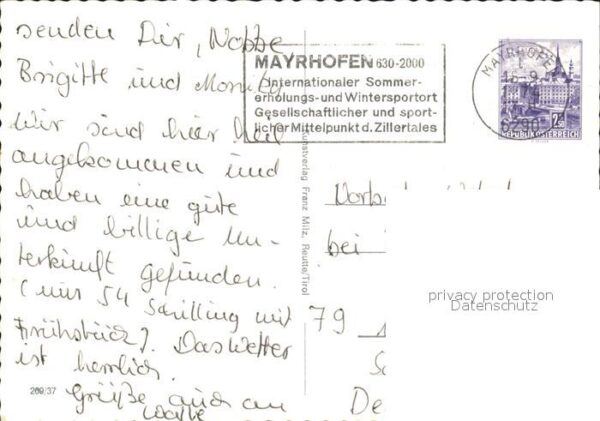 senden Dir, Nobbe
Brigitte und Monika
Wir sind hier heil
angekommen und
haben eine gute
und billige Un-
terkunft gefunden.
(nur 54 Schilling mit
Frühstück). Das Wetter
ist herrlich.
Grüße auch an
MAYRHOFEN 630-2000
Internationaler Sommer-
erholungs- und Wintersportort
Gesellschaftlicher und sport-
licher Mittelpunkt d. Zillertales
MAYRHOFEN
6290
2.50
REPUBLIK ÖSTERREICH
Kunstverlag Franz Milz, Reutte/Tirol
bei
79
privacy protection
Datenschutz
269/37